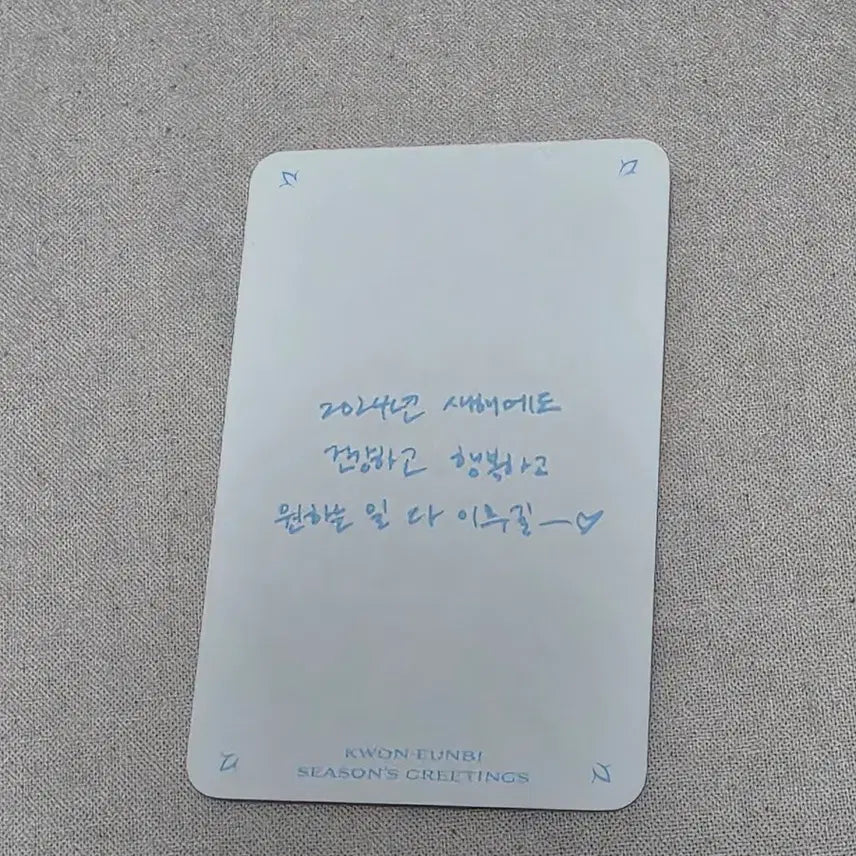 2024년 새해에도
건강하고 행복하고
원하는 일 다 이루길—♡
KWON EUNBI
SEASON'S GREETINGS